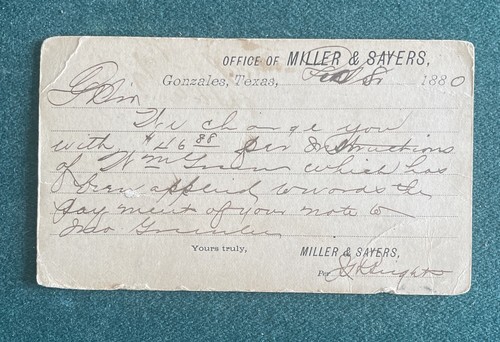 OFFICE OF MILLER & SAYERS,
Gonzales, Texas, Feb 8 1880
We charge you
with $46 88 per instructions
of Wm Green which has
been applied towards the
payment of your note to
Yours truly,
MILLER & SAYERS,
Per